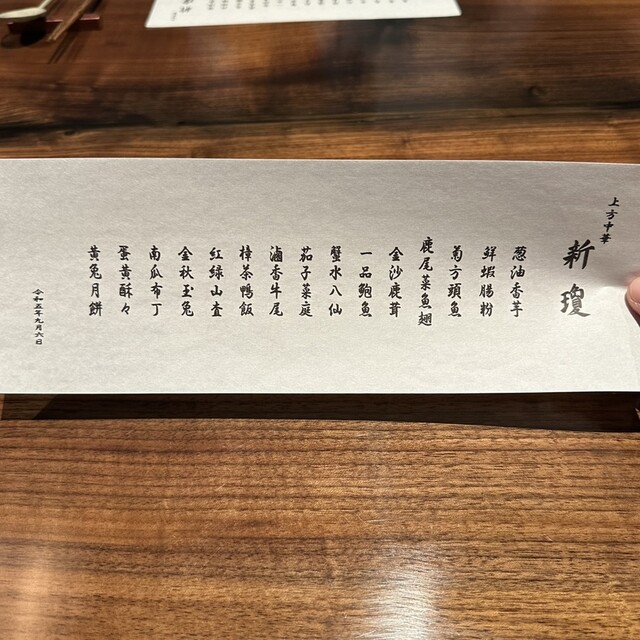 上方中華
新瓊
葱油香芋
鮮蝦腸粉
菊方頭魚
鹿尾菜魚翅
金沙鹿茸
一品鮑魚
蟹水八仙
茄子菜庭
滷香牛尾
樟茶鴨飯
紅緑山査
金秋玉兎
南瓜布丁
蛋黄酥々
黄兔月餅
令和五年九月六日